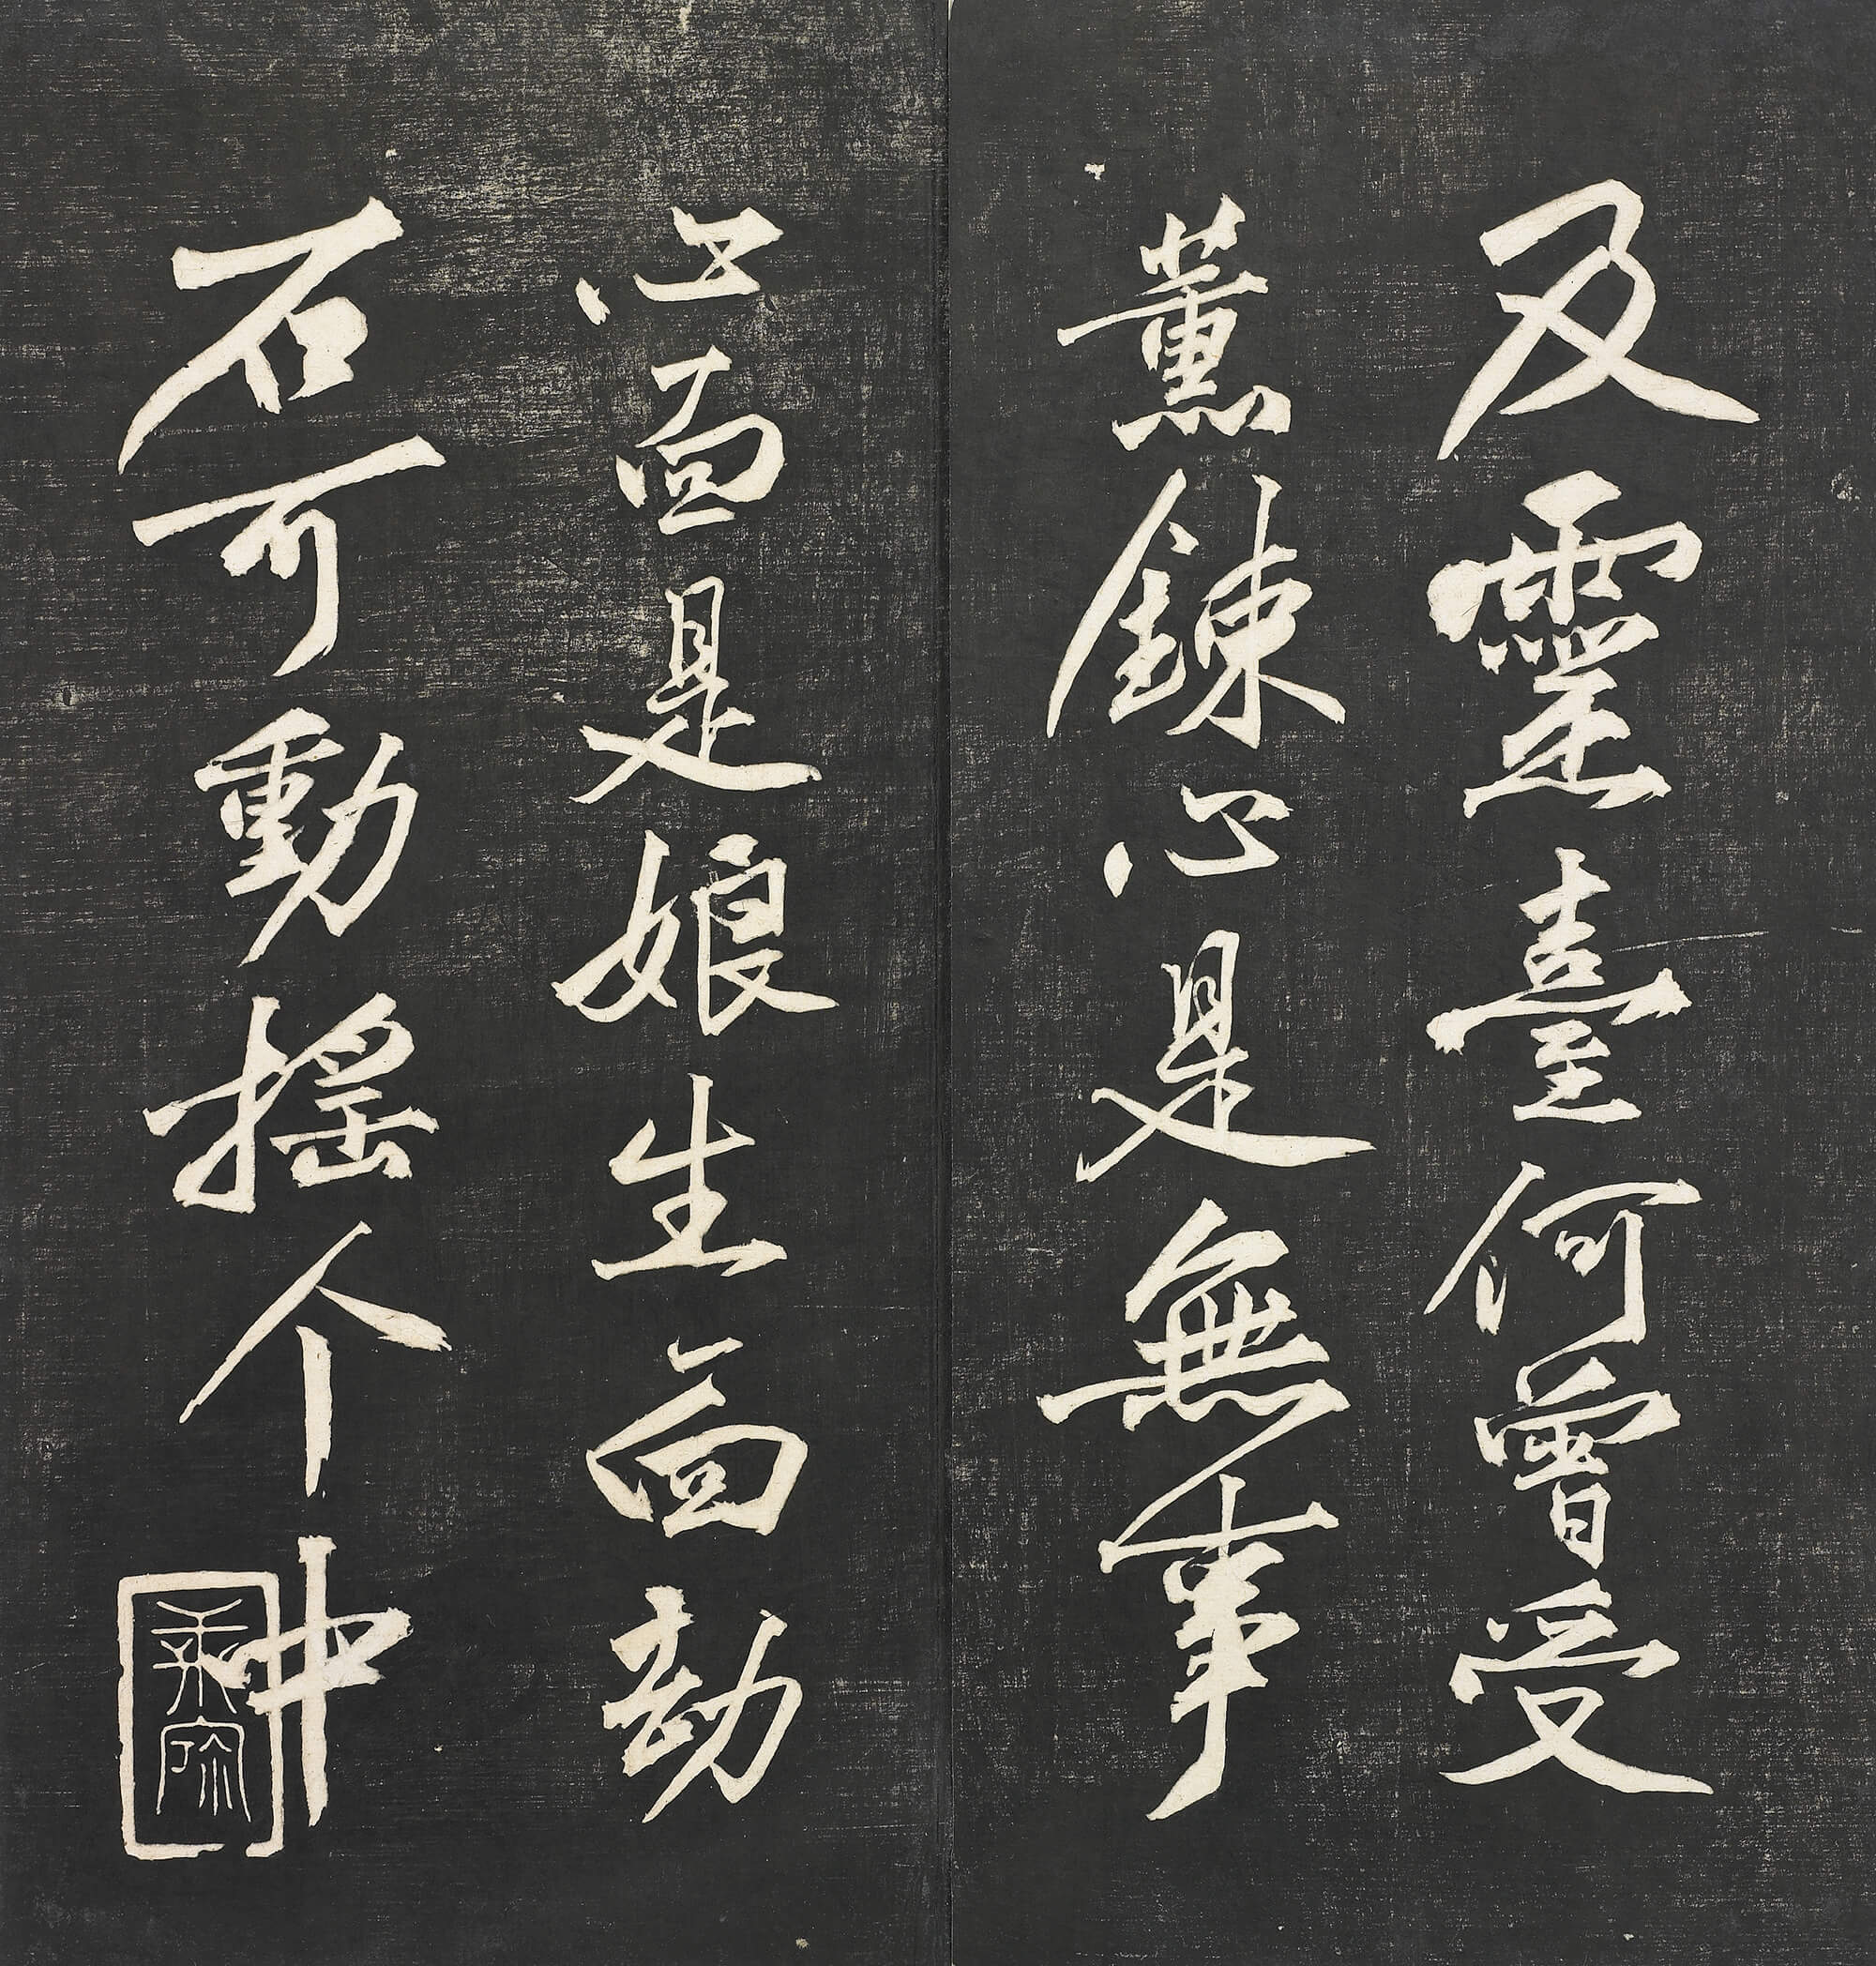 及靈臺何曾受
薰鍊心是無事
心面是娘生面劫
石可動搖个中